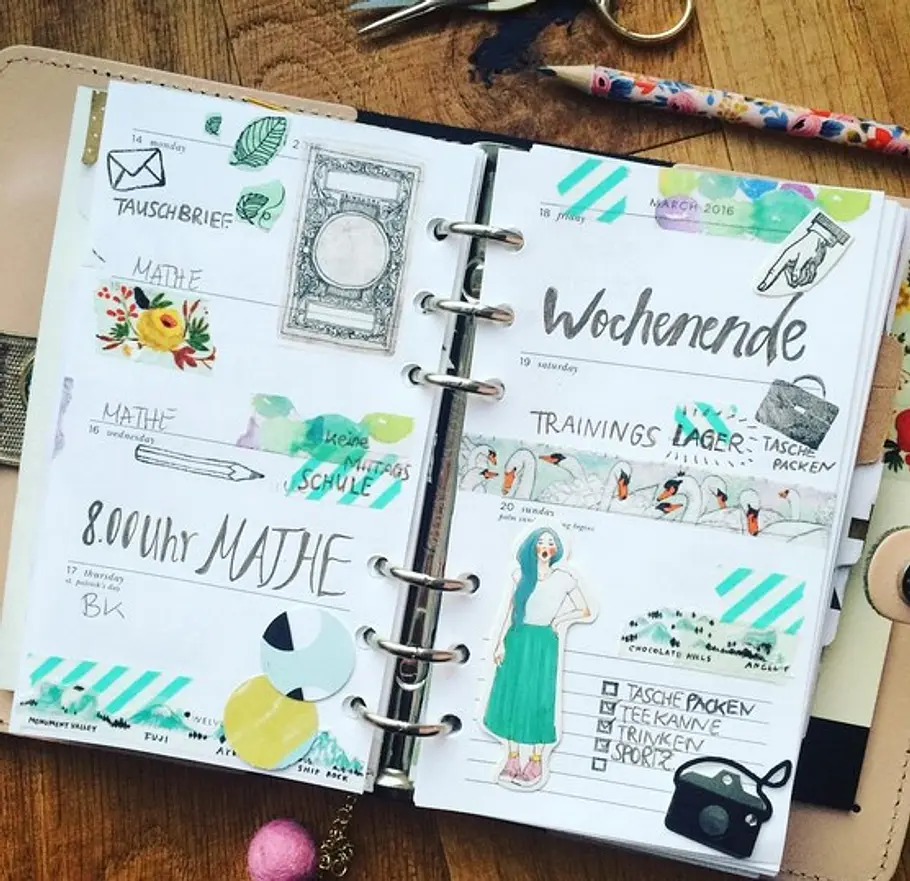 14 monday
TAUSCHBRIEF
MATHE
MATHE
16 wednesday
keine
MITTAGS
SCHULE
8.00 Uhr MATHE
17 thursday
st. patrick's day
BK
MONUMENT VALLEY
FUJI
SHIP ROCK
MARCH 2016
18 friday
Wochenende
19 saturday
TRAININGS LAGER
TASCHE
PACKEN
20 sunday
CHOCOLATE HILLS
TASCHE PACKEN
TEEKANNE
TRINKEN
SPORTZ.